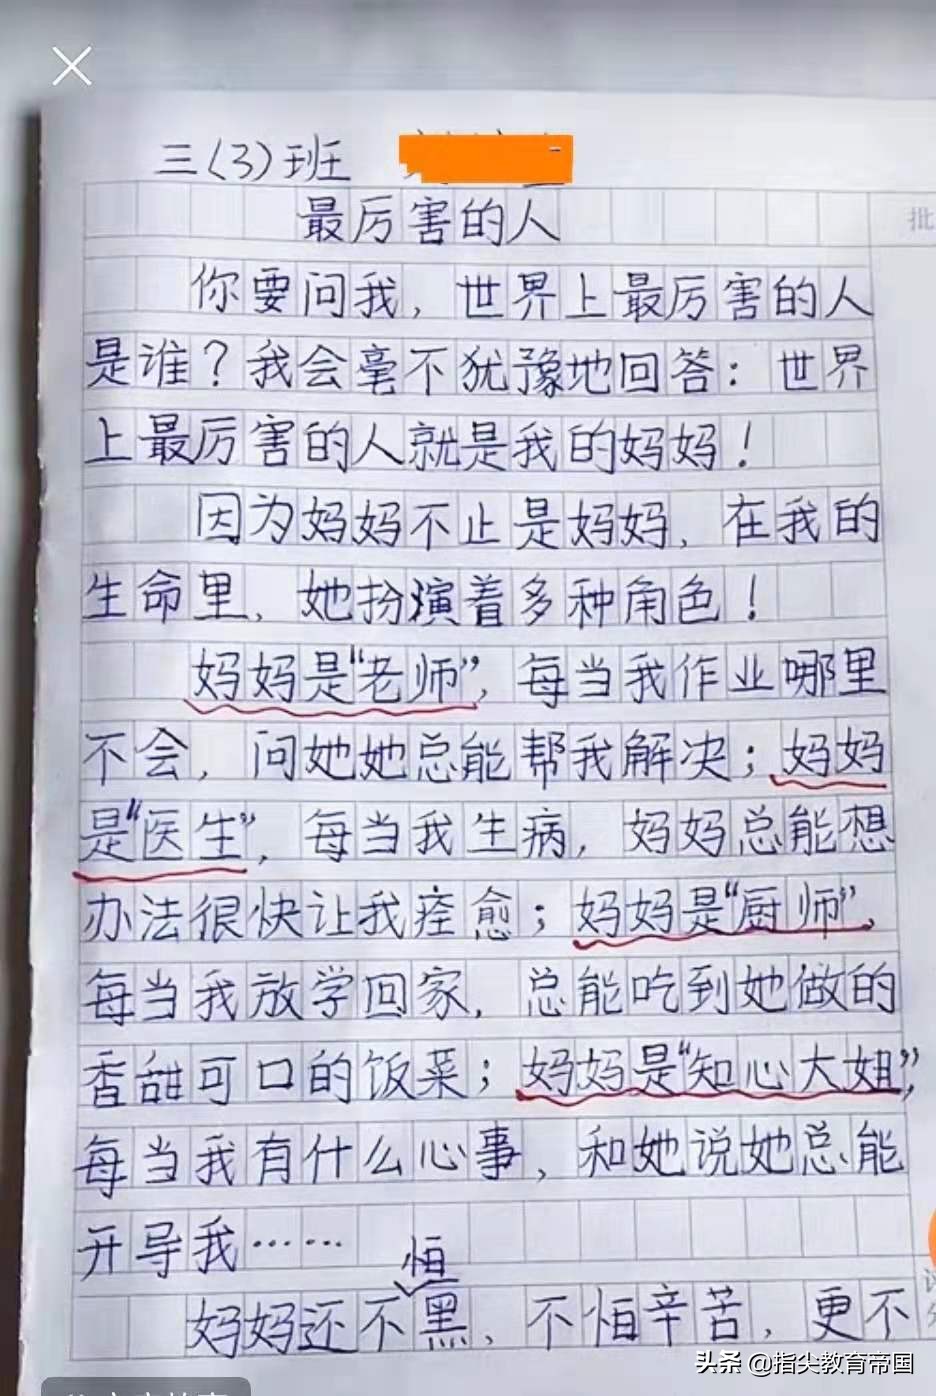 三(3)班
最厉害的人
批
你要问我，世界上最厉害的人
是谁？我会毫不犹豫地回答：世界
上最厉害的人就是我的妈妈！
因为妈妈不止是妈妈，在我的
生命里，她扮演着多种角色！
妈妈是“老师”，每当我作业哪里
不会，问她她总能帮我解决；妈妈
是“医生”，每当我生病，妈妈总能想
办法很快让我痊愈；妈妈是“厨师”，
每当我放学回家，总能吃到她做的
香甜可口的饭菜；妈妈是“知心大姐”，
每当我有什么心事，和她说她总能
开导我……
怕
妈妈还不黑，不怕辛苦，更不
头条 @指尖教育帝国